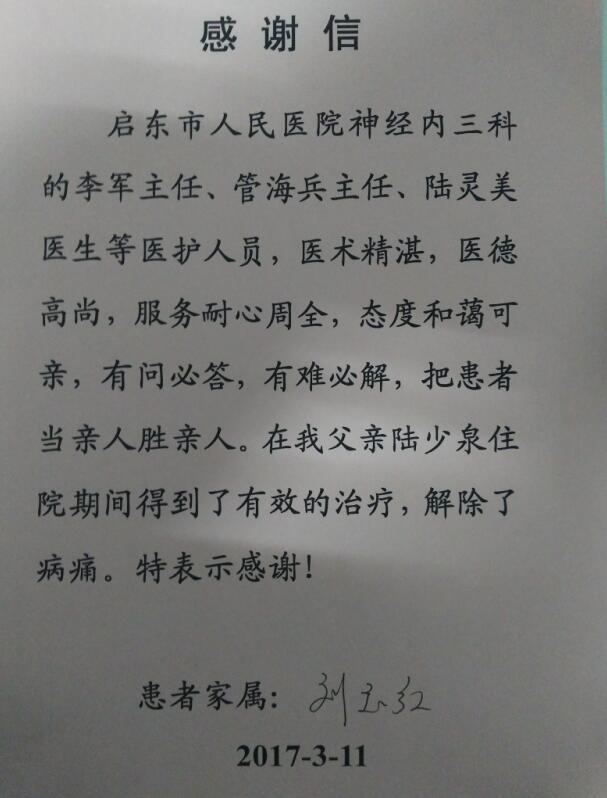 感谢信
启东市人民医院神经内三科
的李军主任、管海兵主任、陆灵美
医生等医护人员，医术精湛，医德
高尚，服务耐心周全，态度和蔼可
亲，有问必答，有难必解，把患者
当亲人胜亲人。在我父亲陆少泉住
院期间得到了有效的治疗，解除了
病痛。特表示感谢！
患者家属：
2017-3-11